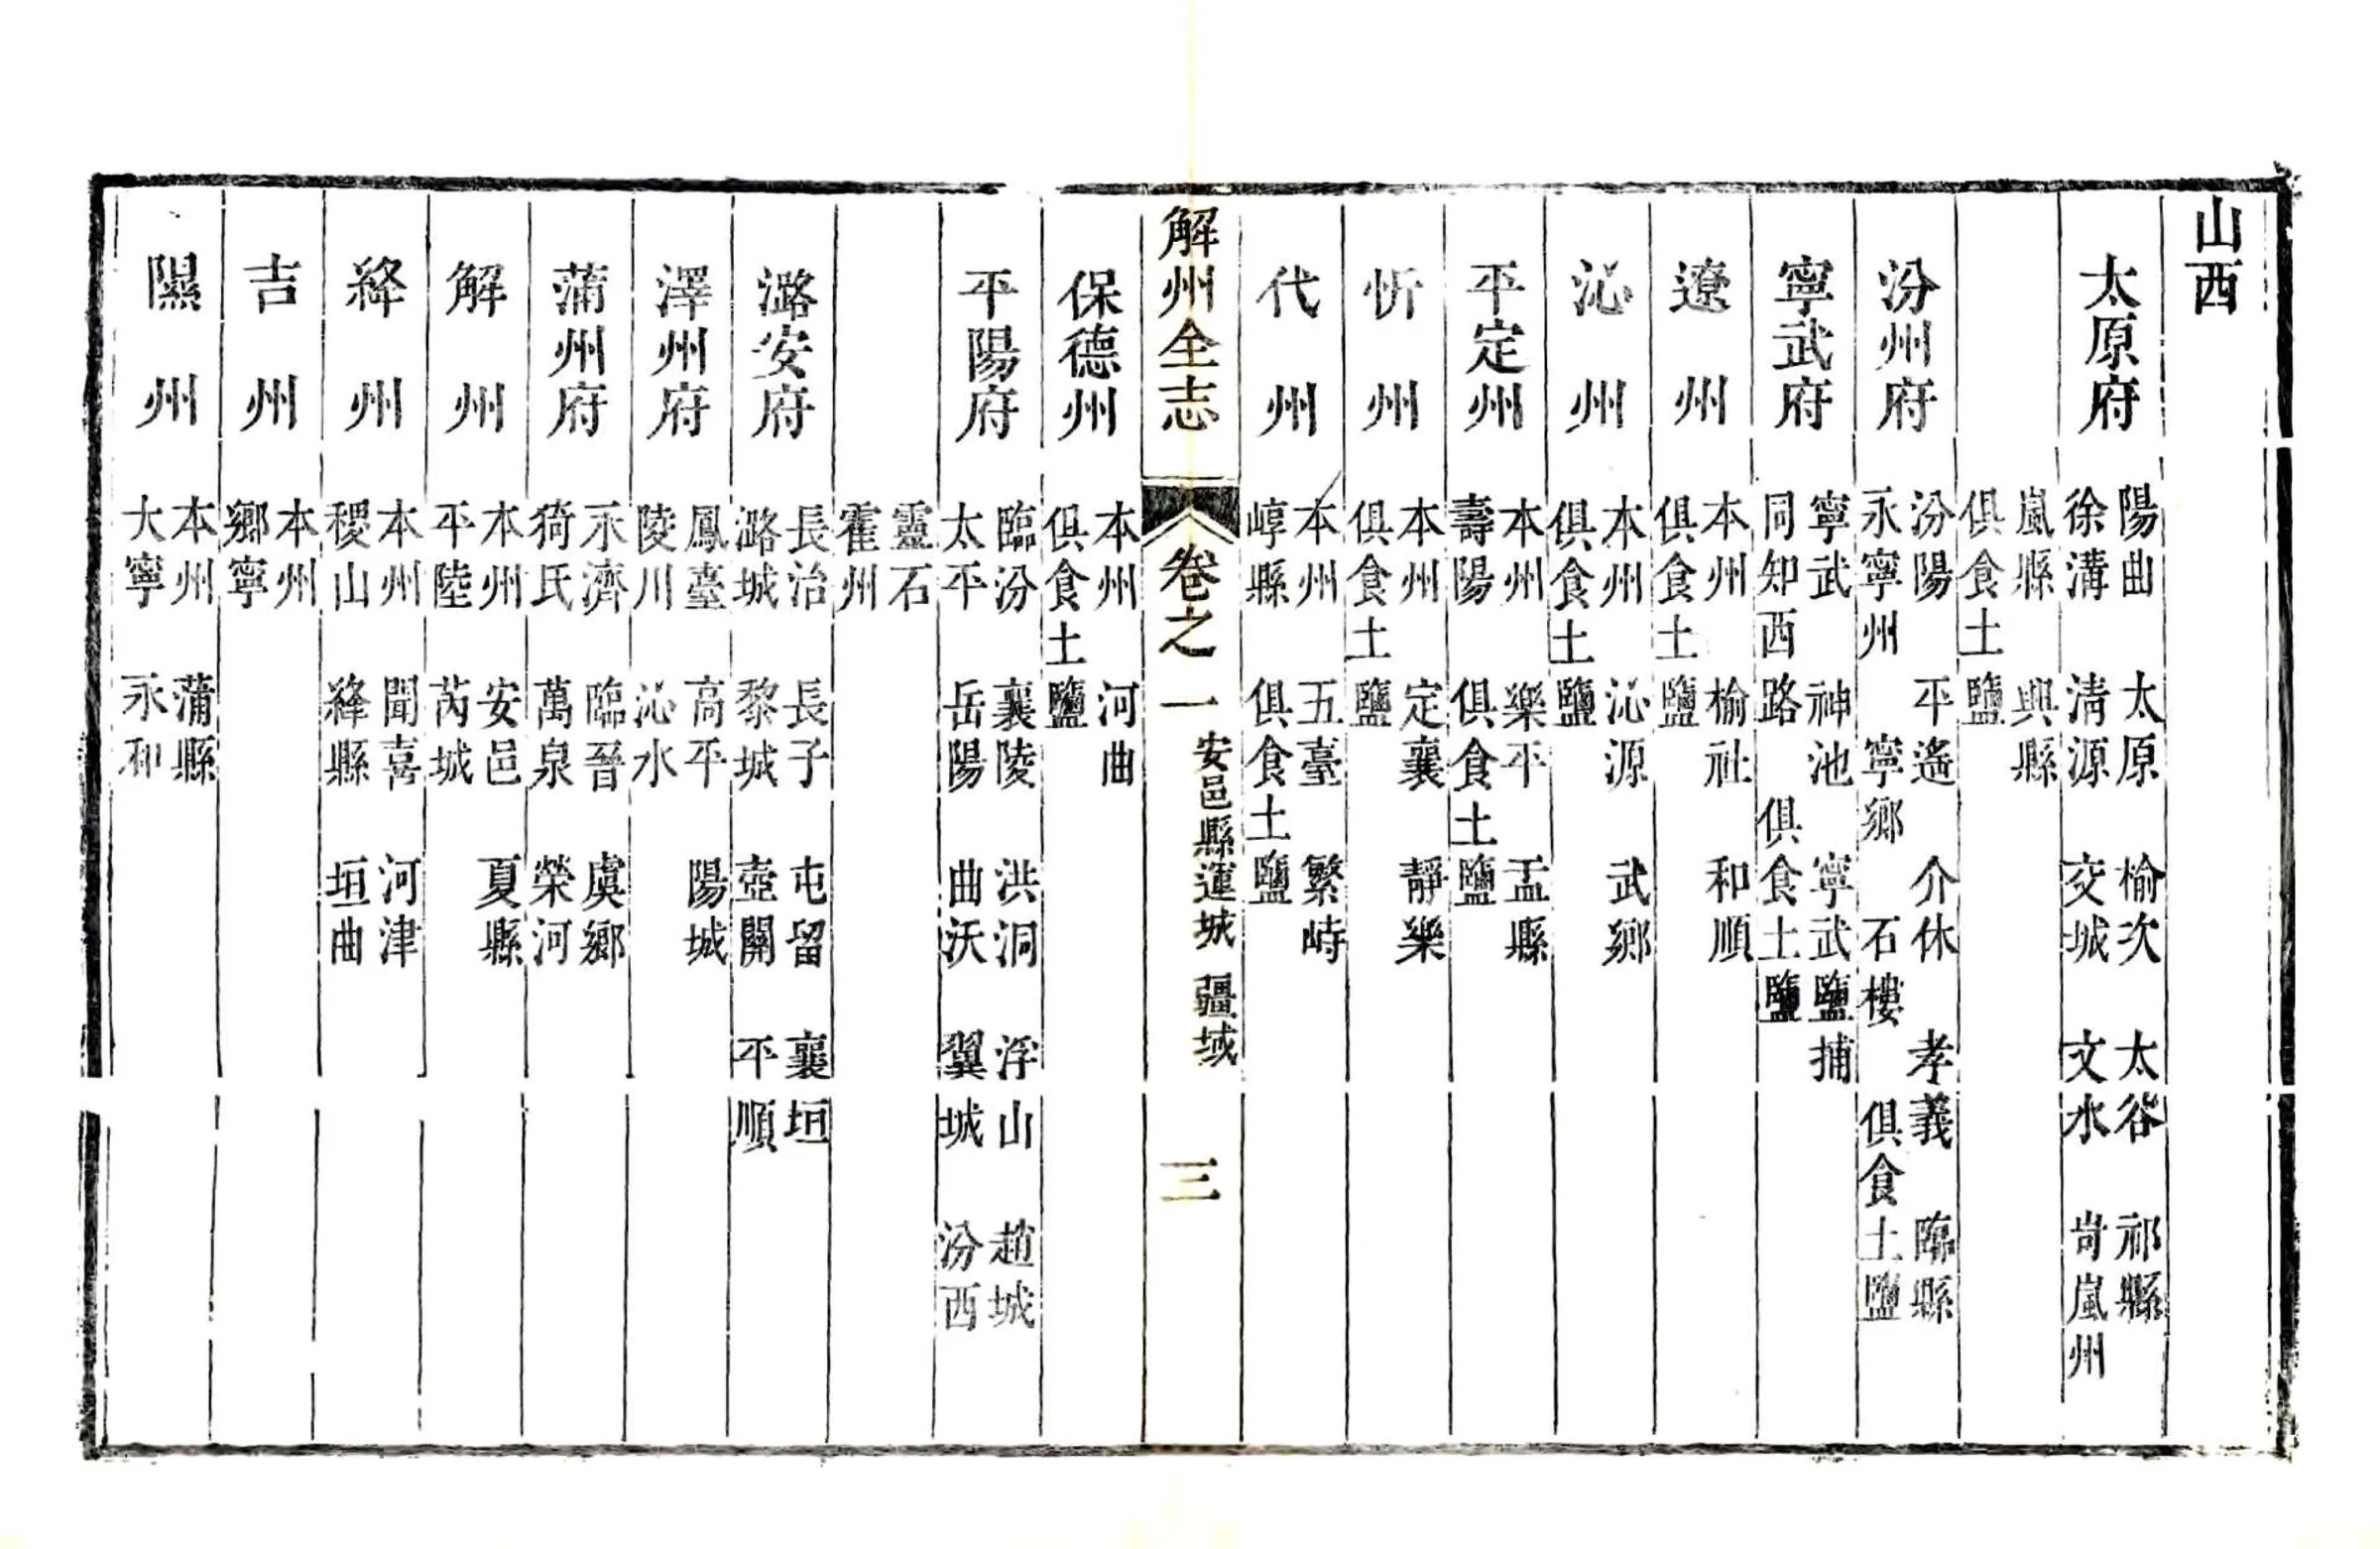 山西
太原府
陽曲 太原 榆次 太谷 祁縣
徐溝 清源 交城 文水 岢嵐州
嵐縣 興縣
俱食土鹽
汾州府
汾陽 平遙 介休 孝義 臨縣
永寧州 寧鄉 石樓 俱食土鹽
寧武府
寧武 神池 寧武鹽捕
同知西路 俱食土鹽
遼州
本州 榆社 和順
俱食土鹽
沁州
本州 沁源 武鄉
俱食土鹽
平定州
本州 樂平 盂縣
壽陽 俱食土鹽
忻州
本州 定襄 靜樂
俱食土鹽
代州
本州 五臺 繁峙
崞縣 俱食土鹽
解州全志 卷之一 安邑縣運城 疆域 三
保德州
本州 河曲
俱食土鹽
平陽府
臨汾 襄陵 洪洞 浮山 趙城
太平 岳陽 曲沃 翼城 汾西
靈石
霍州
潞安府
長治 長子 屯留 襄垣
潞城 黎城 壺關 平順
澤州府
鳳臺 高平 陽城
陵川 沁水
蒲州府
永濟 臨晉 虞鄉
猗氏 萬泉 榮河
解州
本州 安邑 夏縣
平陸 芮城
絳州
本州 聞喜 河津
稷山 絳縣 垣曲
吉州
本州
鄉寧
隰州
本州 蒲縣
大寧 永和